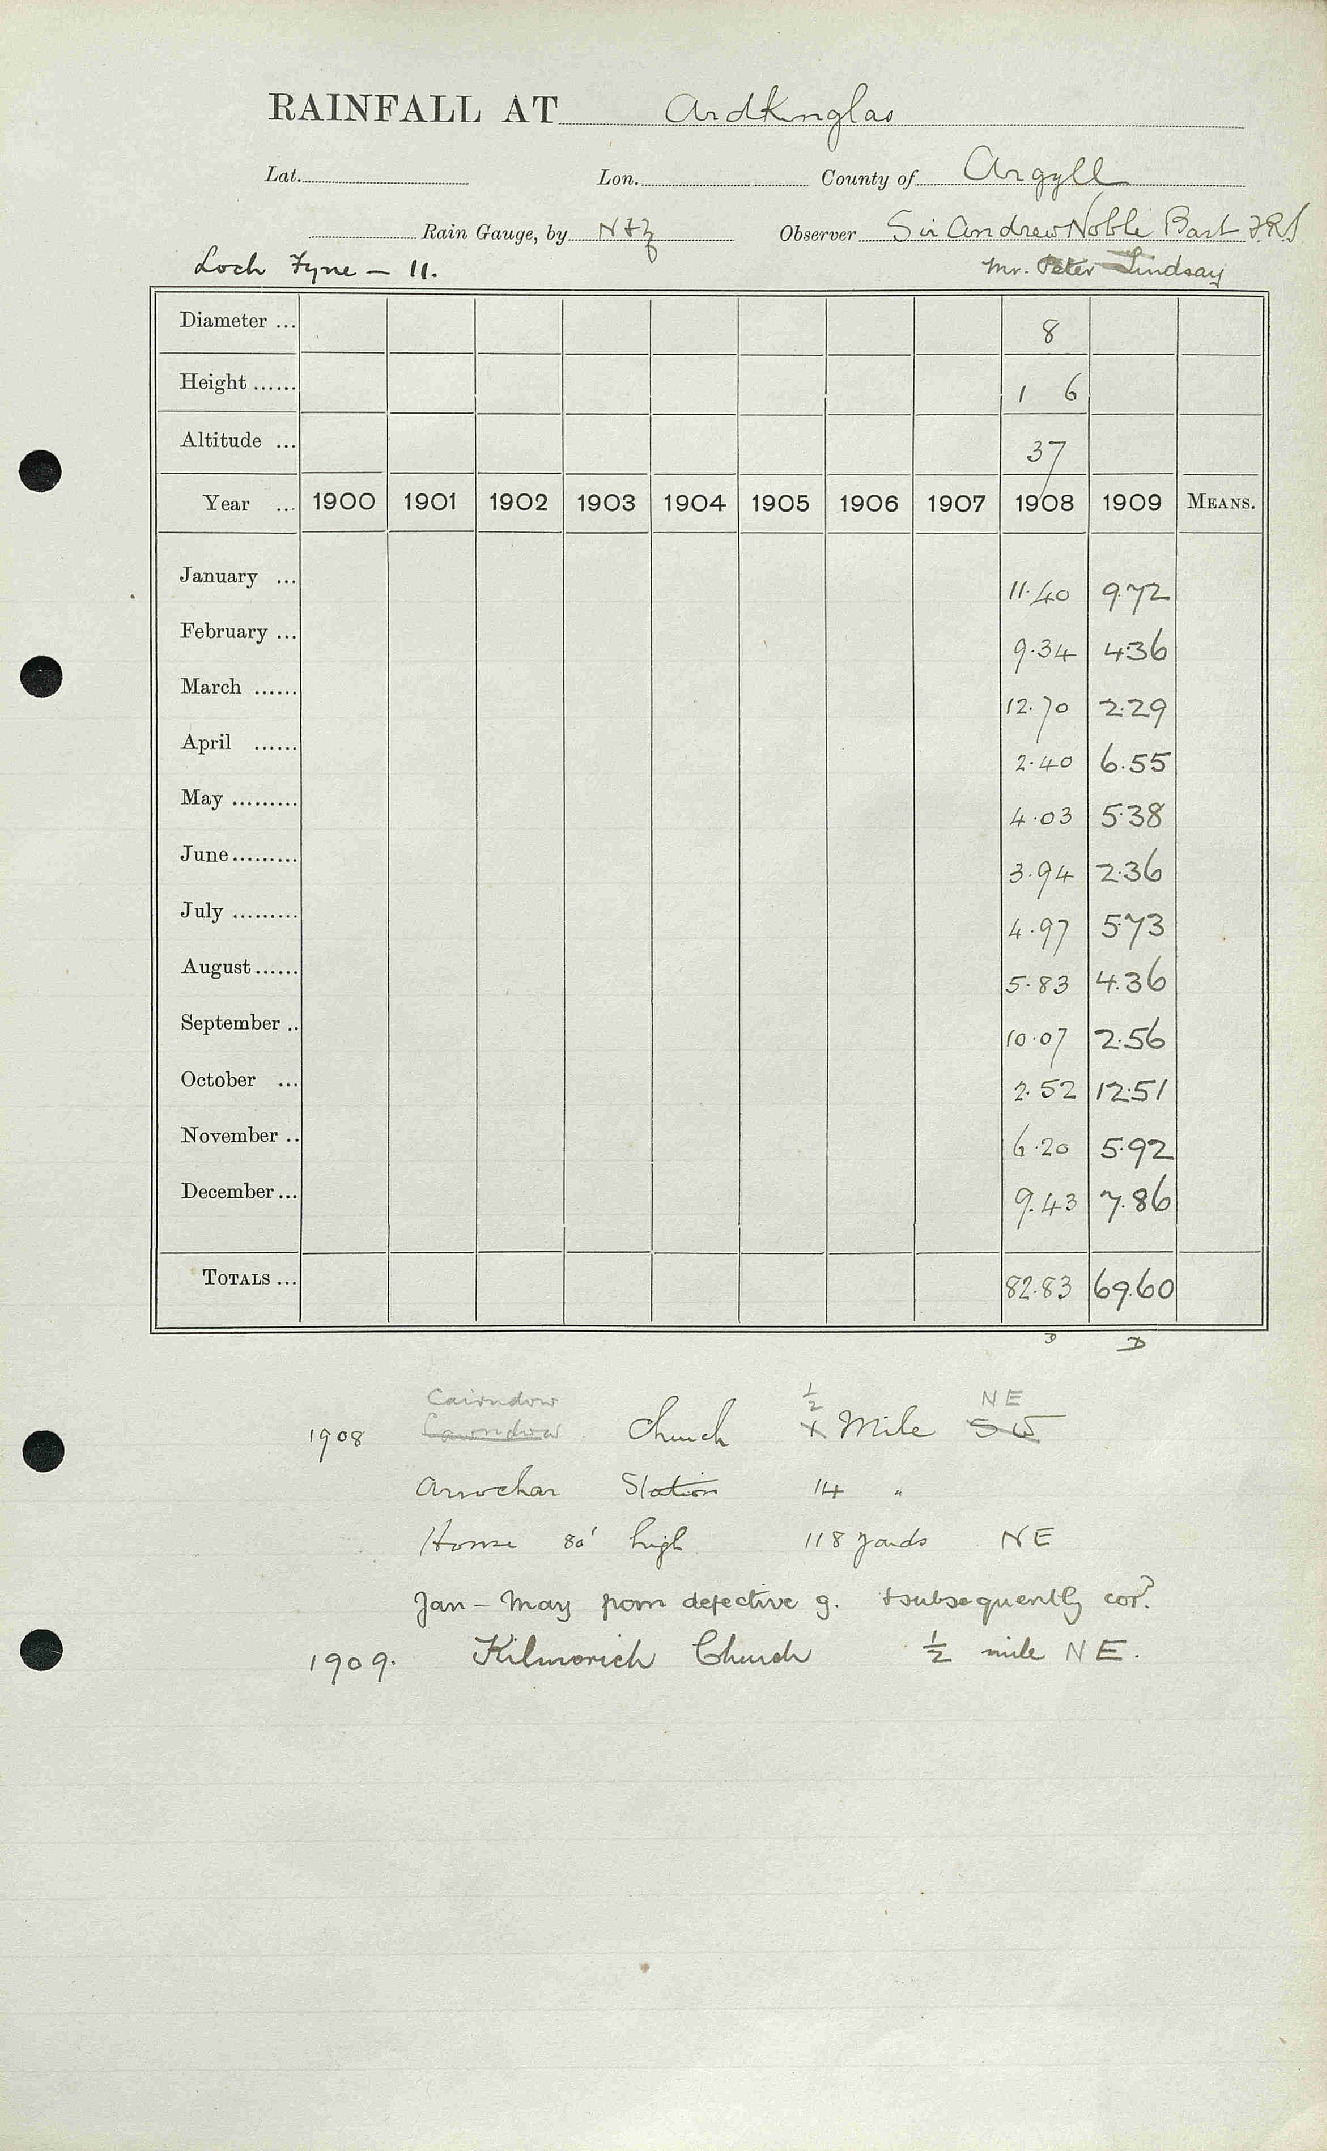 RAINFALL AT Ardkinglas
Lat. Lon. County of Argyll
Rain Gauge, by N & Z Observer Sir Andrew Noble Bart FRS
Loch Fyne – 11. Mr. Peter Lindsay
Diameter ... 8
Height ...... 1 6
Altitude ... 37
Year ... 1900 1901 1902 1903 1904 1905 1906 1907 1908 1909 MEANS.
January ... 11.40 9.72
February ... 9.34 4.36
March ...... 12.70 2.29
April ...... 2.40 6.55
May ......... 4.03 5.38
June......... 3.94 2.36
July ......... 4.97 5.73
August ...... 5.83 4.36
September .. 10.07 2.56
October ... 2.52 12.51
November .. 6.20 5.92
December... 9.43 7.86
TOTALS ... 82.83 69.60
D
Cairndow ½ NE
1908 Cairndow Church 1 Mile SW
Arrochar Station 14 "
House 80' high 118 yards NE
Jan – May from defective g. & subsequently cor?
1909. Kilmorich Church ½ mile NE.